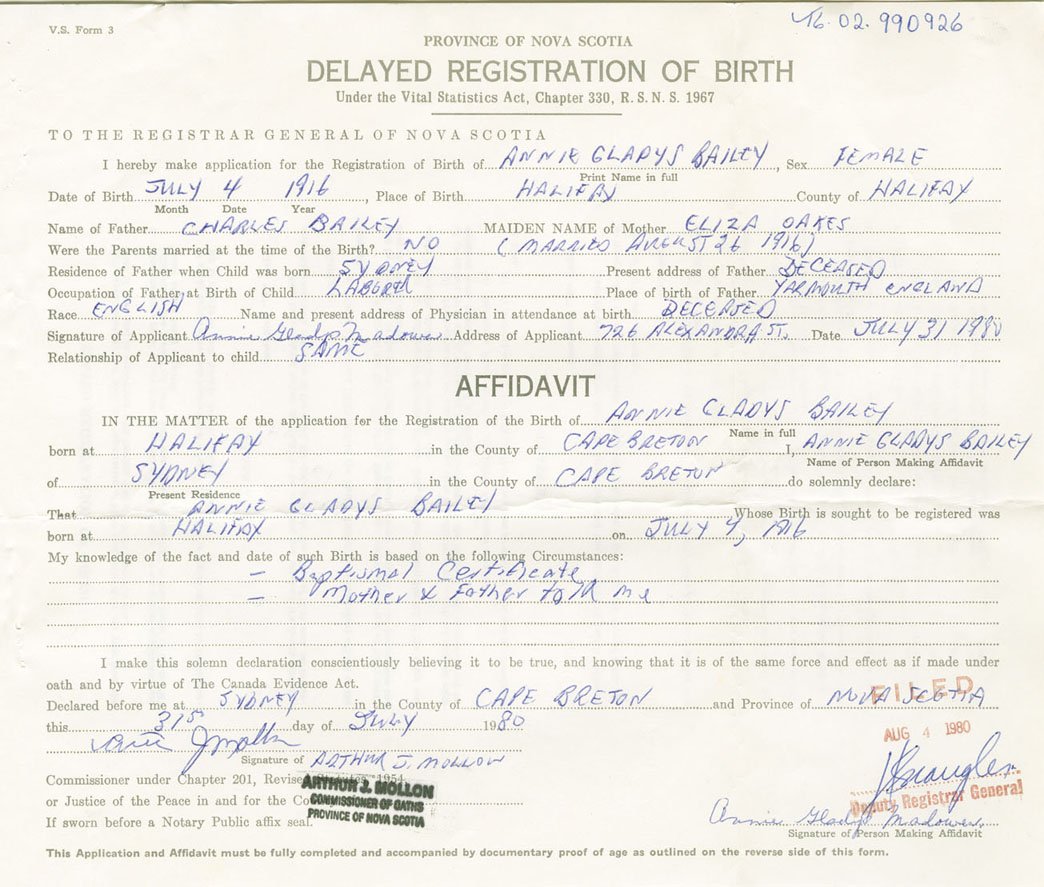 V.S. Form 3
16. 02. 990926
PROVINCE OF NOVA SCOTIA
DELAYED REGISTRATION OF BIRTH
Under the Vital Statistics Act, Chapter 330, R. S. N. S. 1967
TO THE REGISTRAR GENERAL OF NOVA SCOTIA
I hereby make application for the Registration of Birth of ANNIE GLADYS BAILEY, Sex FEMALE
Print Name in full
Date of Birth JULY 4 1916, Place of Birth HALIFAX County of HALIFAX
Month Date Year
Name of Father CHARLES BAILEY MAIDEN NAME of Mother ELIZA OAKES
Were the Parents married at the time of the Birth? NO (MARRIED AUGUST 26 1916)
Residence of Father when Child was born SYDNEY Present address of Father DECEASED
Occupation of Father at Birth of Child LABORER Place of birth of Father YARMOUTH ENGLAND
Race ENGLISH Name and present address of Physician in attendance at birth DECEASED
Signature of Applicant Annie Gladys Madower Address of Applicant 726 ALEXANDRA ST. Date JULY 31 1980
Relationship of Applicant to child SAME
AFFIDAVIT
IN THE MATTER of the application for the Registration of the Birth of ANNIE GLADYS BAILEY
Name in full
born at HALIFAX in the County of CAPE BRETON I, ANNIE GLADYS BAILEY
Name of Person Making Affidavit
of SYDNEY in the County of CAPE BRETON do solemnly declare:
Present Residence
That ANNIE GLADYS BAILEY Whose Birth is sought to be registered was
born at HALIFAX on JULY 4, 1916
My knowledge of the fact and date of such Birth is based on the following Circumstances:
- Baptismal Certificate
- Mother & Father told me
I make this solemn declaration conscientiously believing it to be true, and knowing that it is of the same force and effect as if made under
oath and by virtue of The Canada Evidence Act.
Declared before me at SYDNEY in the County of CAPE BRETON and Province of NOVA SCOTIA
FILED
this 31st day of July 1980
AUG 4 1980
Signature of ARTHUR J. MOLLON
Commissioner under Chapter 201, Revised 1954
ARTHUR J. MOLLON
or Justice of the Peace in and for the Co
COMMISSIONER OF OATHS
Deputy Registrar General
If sworn before a Notary Public affix seal.
PROVINCE OF NOVA SCOTIA
Annie Gladys Madower
Signature of Person Making Affidavit
This Application and Affidavit must be fully completed and accompanied by documentary proof of age as outlined on the reverse side of this form.